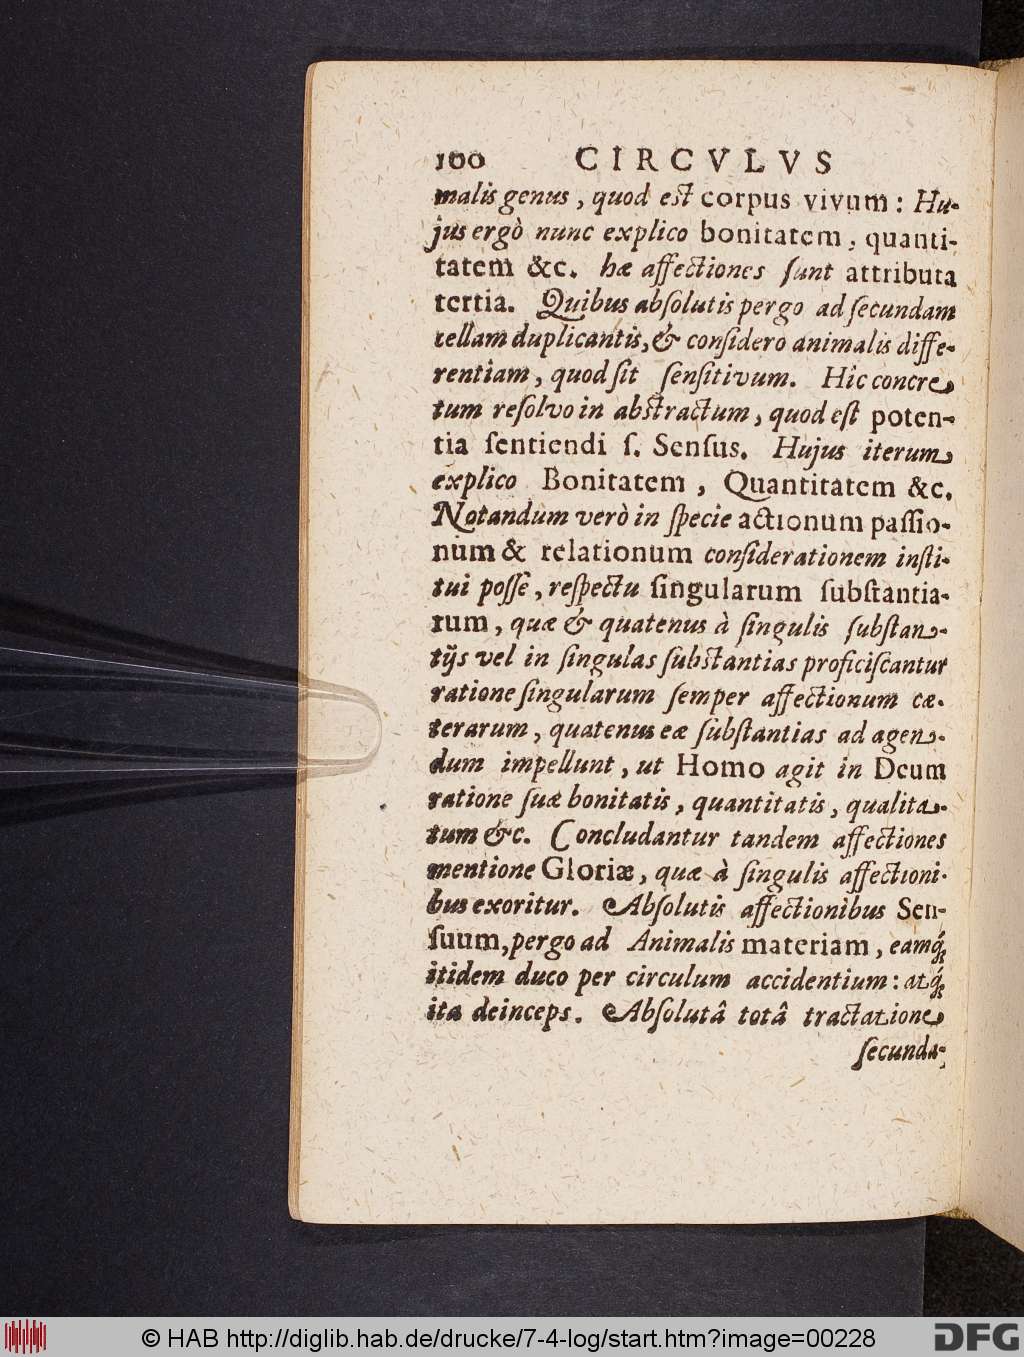 100 CIRCVLVS
malis genus, quod est corpus vivum: Hu-
jus ergò nunc explico bonitatem, quanti-
tatem &c. hæ affectiones sunt attributa
tertia. Quibus absolutis pergo ad secundam
cellam duplicantis, & considero animalis diffe-
rentiam, quod sit sensitivum. Hic concre
tum resolvo in abstractum, quod est poten-
tia sentiendi s. Sensus. Hujus iterum
explico Bonitatem, Quantitatem &c.
Notandum verò in specie actionum passio-
num & relationum considerationem insti-
tui posse, respectu singularum substantia-
rum, quæ & quatenus à singulis substan-
tijs vel in singulas substantias proficiscantur
ratione singularum semper affectionum cæ-
terarum, quatenus eæ substantias ad agen-
dum impellunt, ut Homo agit in Deum
ratione suæ bonitatis, quantitatis, qualita-
tum &c. Concludantur tandem affectiones
mentione Gloriæ, quæ à singulis affectioni-
bus exoritur. Absolutis affectionibus Sen-
suum, pergo ad Animalis materiam, eamq́;
itidem duco per circulum accidentium: atq́;
ita deinceps. Absolutâ totâ tractatione
secunda-
© HAB http://diglib.hab.de/drucke/7-4-log/start.htm?image=00228
DFG